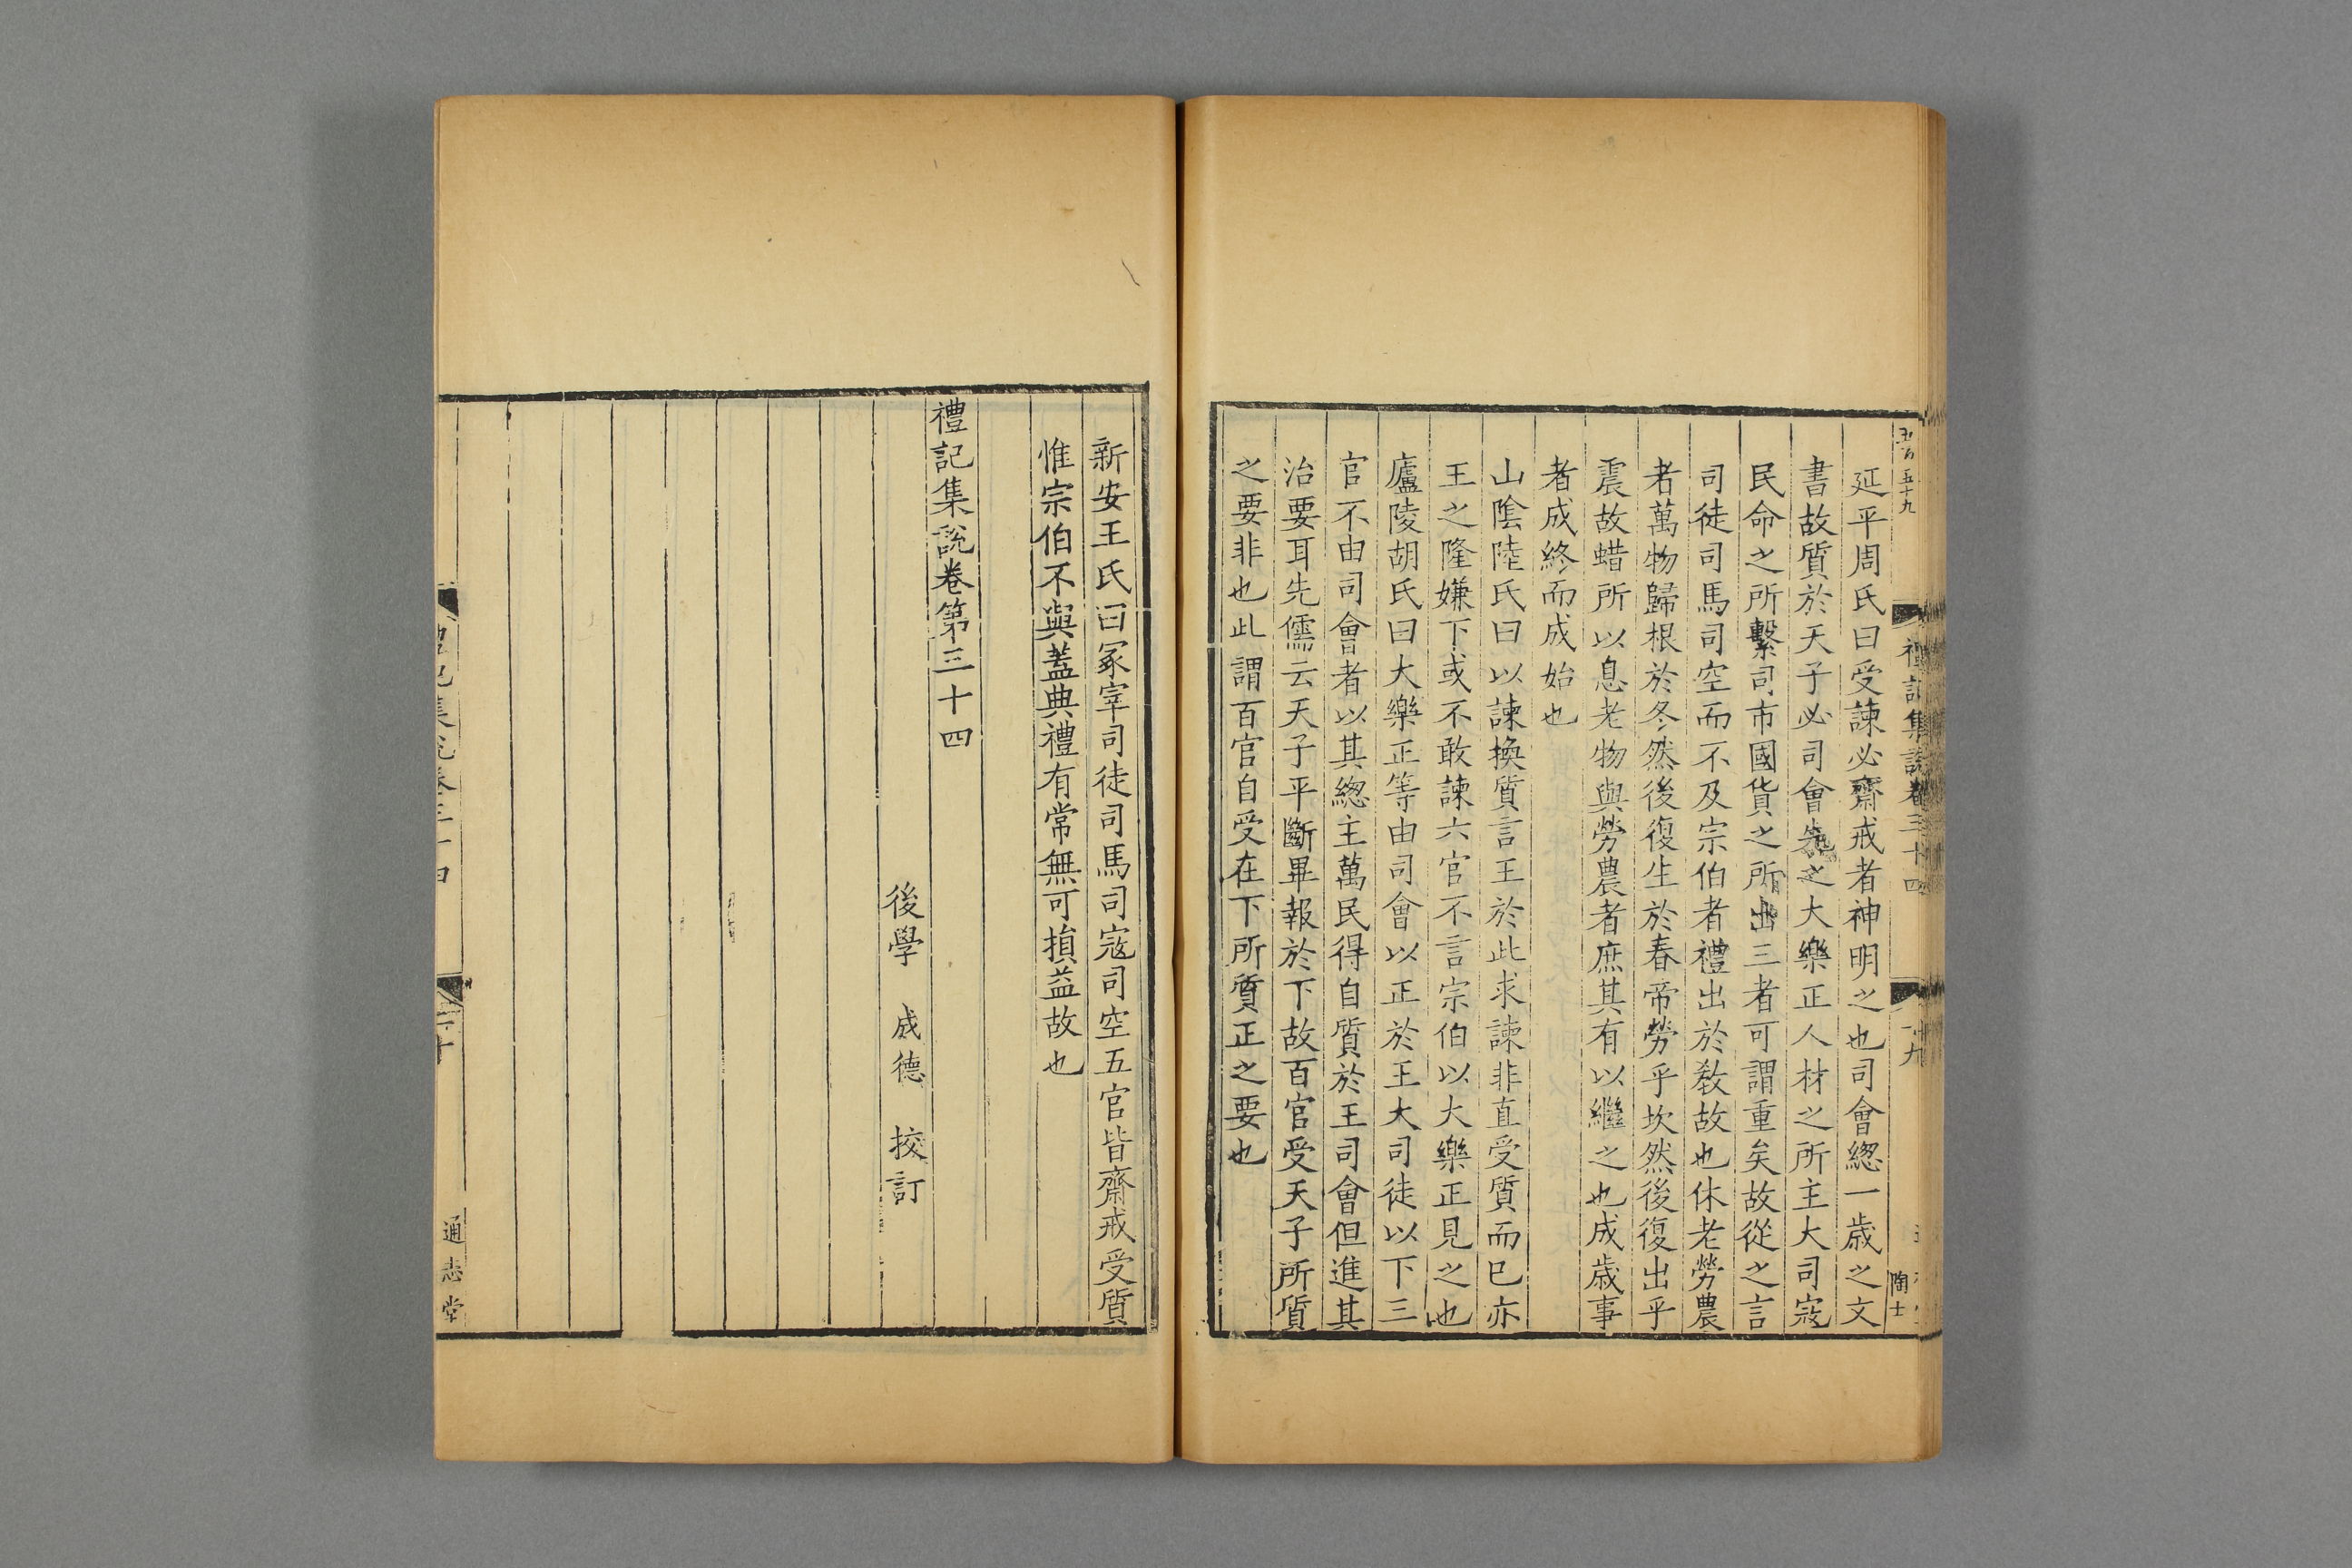 五百五十九
禮記集說卷三十四
十九
陶士
延平周氏曰受諫必齋戒者神明之也司會緫一歳之文
書故質於天子必司會先之大樂正人材之所主大司寇
民命之所繫司市國貨之所出三者可謂重矣故從之言
司徒司馬司空而不及宗伯者禮出於敎故也休老勞農
者萬物歸根於冬然後復生於春帝勞乎坎然後復出乎
震故蜡所以息老物與勞農者庶其有以繼之也成歳事
者成終而成始也
山隂陸氏曰以諫換質言王於此求諫非直受質而已亦
王之隆嫌下或不敢諫六官不言宗伯以大樂正見之也
廬陵胡氏曰大樂正等由司會以正於王大司徒以下三
官不由司會者以其緫主萬民得自質於王司會但進其
治要耳先儒云天子平斷畢報於下故百官受天子所質
之要非也此謂百官自受在下所質正之要也
新安王氏曰冢宰司徒司馬司寇司空五官皆齋戒受質
惟宗伯不與蓋典禮有常無可損益故也
禮記集說卷第三十四
後學 成德 挍訂
禮記集說卷三十四
二十
通志堂